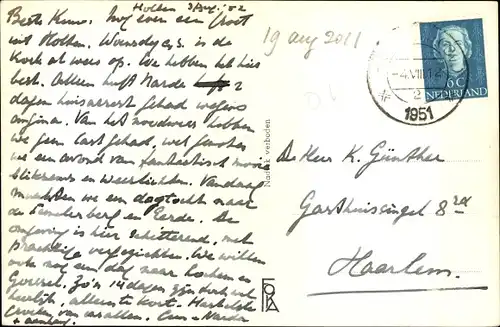 Holten 3 Aug. '52
Beste Kuno. Nog even een groet
uit Holten. Woensdag j.s. is de
Koek al weer op. We hebben het hier
best. Alleen heeft Narda 2
dagen huisarrest gehad wegens
angina. Van het noodweer hebben
we geen last gehad, wel genoten
we een avond van fantastisch mooie
bliksems en weerlichten. Vandaag
maakten we een dagtocht naar
de Lemelerberg en Eerde. De
omgeving is hier schitterend, met
prachtige vergezichten. We willen
ook nog een dag naar Lochem en
Gorssel. Zo'n 14 dagen zijn toch wel
heerlijk, alleen te kort. Hartelijke
groeten van ons allen. Narda
19 aug 2011
-4.VIII.
1951
6 C
NEDERLAND
De Heer K. Günther
Gasthuissingel 8 rd
Haarlem.
Nadruk verboden